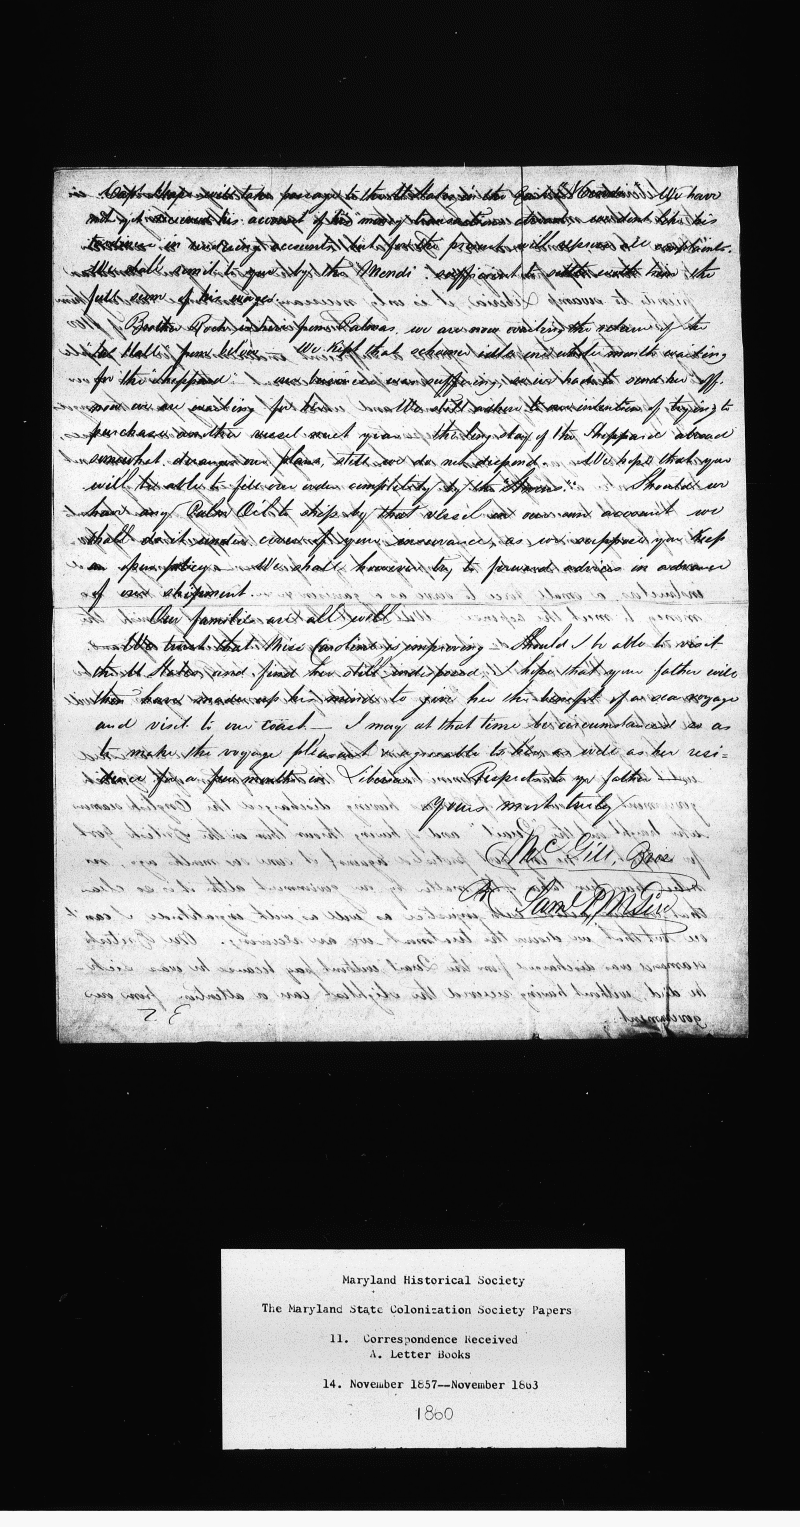 Capt. will take passage to the U States in the We have
not yet received his account of his money transactions abroad
in rendering accounts, but for the present will all complaints.
We shall remit to you by the Mendi sufficient to settle with him the
full sum of his wages.
Brother is here from Palmas, we are now waiting the return of the
Hall from below. We kept that schooner idle one whole month waiting
for the Sheppard our business was suffering, so we had to send her off.
now we are waiting for her. We still adhere to our intention of trying to
purchase another vessel next year the long stay of the Sheppard abroad
somewhat deranges our plans, still we do not We hope that you
will be able to fill our order completely by the Should we
have any Palm Oil to ship by that vessel on our own account we
shall do it under cover of your insurance, as we suppose you keep
an open policy. We shall however try to forward advices in advance
of our shipment.
Our families are all well
We trust that Miss Caroline is improving. Should I be able to visit
the U States and find her still indisposed, I hope that your father will
then have made up his mind to give her the benefit of a sea voyage
and visit to our coast — I may at that time be circumstanced so as
to make the voyage pleasant & agreeable to her as well as her resi-
dence for a few months in Liberia. Respects to yr father
Yours most truly
McGill Bros
Saml F McGill
Maryland Historical Society
The Maryland State Colonization Society Papers
11. Correspondence Received
A. Letter Books
14. November 1857--November 1863
1860